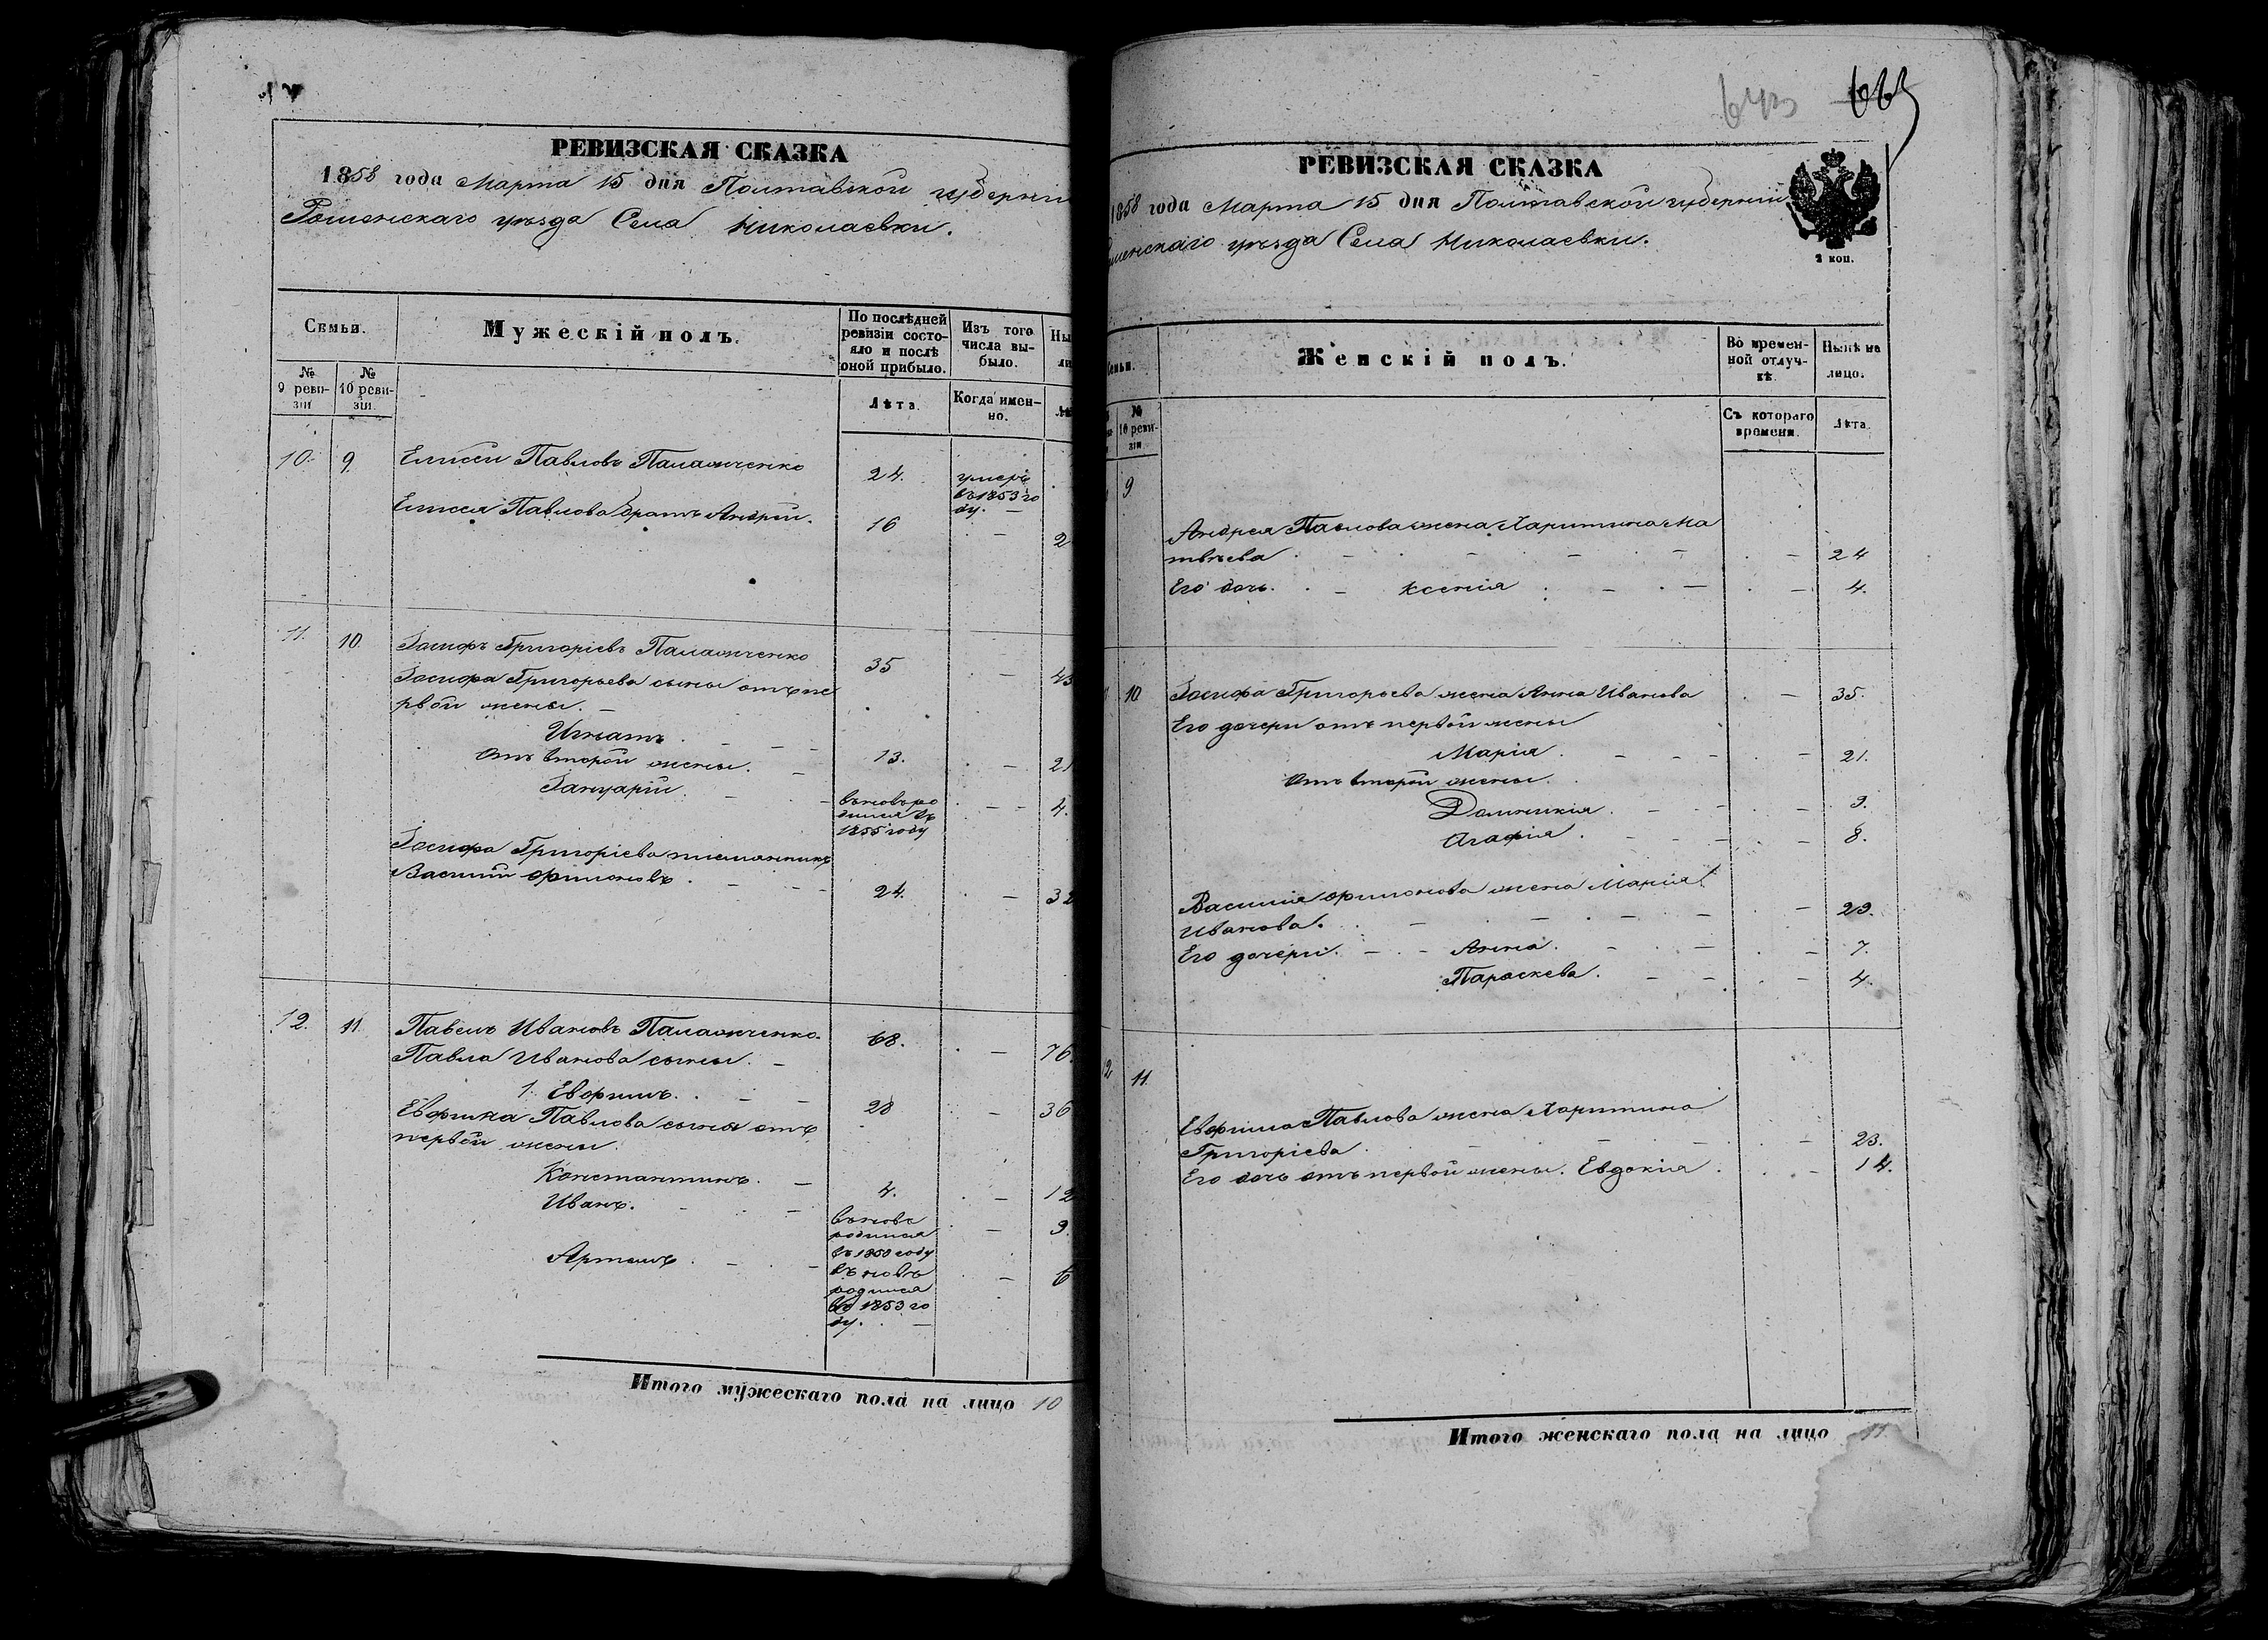 РЕВИЗСКАЯ СКАЗКА
1858 года Марта 15 дня Полтавской губерніи
Роменскаго уѣзда Села Николаевки.
Семьи.
Мужескій полъ.
По послѣдней ревизіи состояло и послѣ оной прибыло.
Изъ того числа выбыло.
№ 9 ревизіи
№ 10 ревизіи.
Лѣта.
Когда именно.
10. 9. Елисей Павловъ Паламаченко 24. умеръ
въ 1853 го
ду. —
Елисея Павлова братъ Андрей. 16 —
11. 10. Іосифъ Григоріевъ Паламаченко 35 —
Іосифа Григорьева сыны отъ пе
рвой жены. —
Игнатъ. 13. — 21
отъ второй жены. —
Іануарій. вновь ро — 4.
дился въ
1855 году
Іосифа Григоріева племянникъ
Василий Филоновъ. 24. — 32
12. 11. Павелъ Ивановъ Паламаченко. 68. — 76.
Павла Иванова сыны. —
1. Евфимъ. 28 — 36
Евфима Павлова сыны отъ
первой жены.
Константинъ. 4. — 12
Иванъ. вновь — 9.
родился
въ 1850 году
Артемъ. въ новь — 6
родился
въ 1853 го
ду. —
Итого мужескаго пола на лицо 10
643 665
РЕВИЗСКАЯ СКАЗКА
1858 года Марта 15 дня Полтавской губерніи
уѣзда Села Николаевки.
2 коп.
Женскій полъ.
Во временной отлучкѣ.
Нынѣ на лицо.
№ 10 ревизіи
Съ котораго времени.
Лѣта.
9 Андрея Павлова жена Харитина Ма
твѣева — 24
Его дочь. Ксенія — 4.
10 Іосифа Григорьева жена Анна Иванова — 35.
Его дочери отъ первой жены
Марія. — 21.
отъ второй жены.
Домникія. — 9.
Агафія. — 8.
Василія Филонова жена Марія
Иванова. — 29.
Его дочери. Анна. — 7.
Параскева. — 4.
12 11. Евфима Павлова жена Харитина
Григоріева. — 23.
Его дочь отъ первой жены. Евдокія. — 14.
Итого женскаго пола на лицо 11